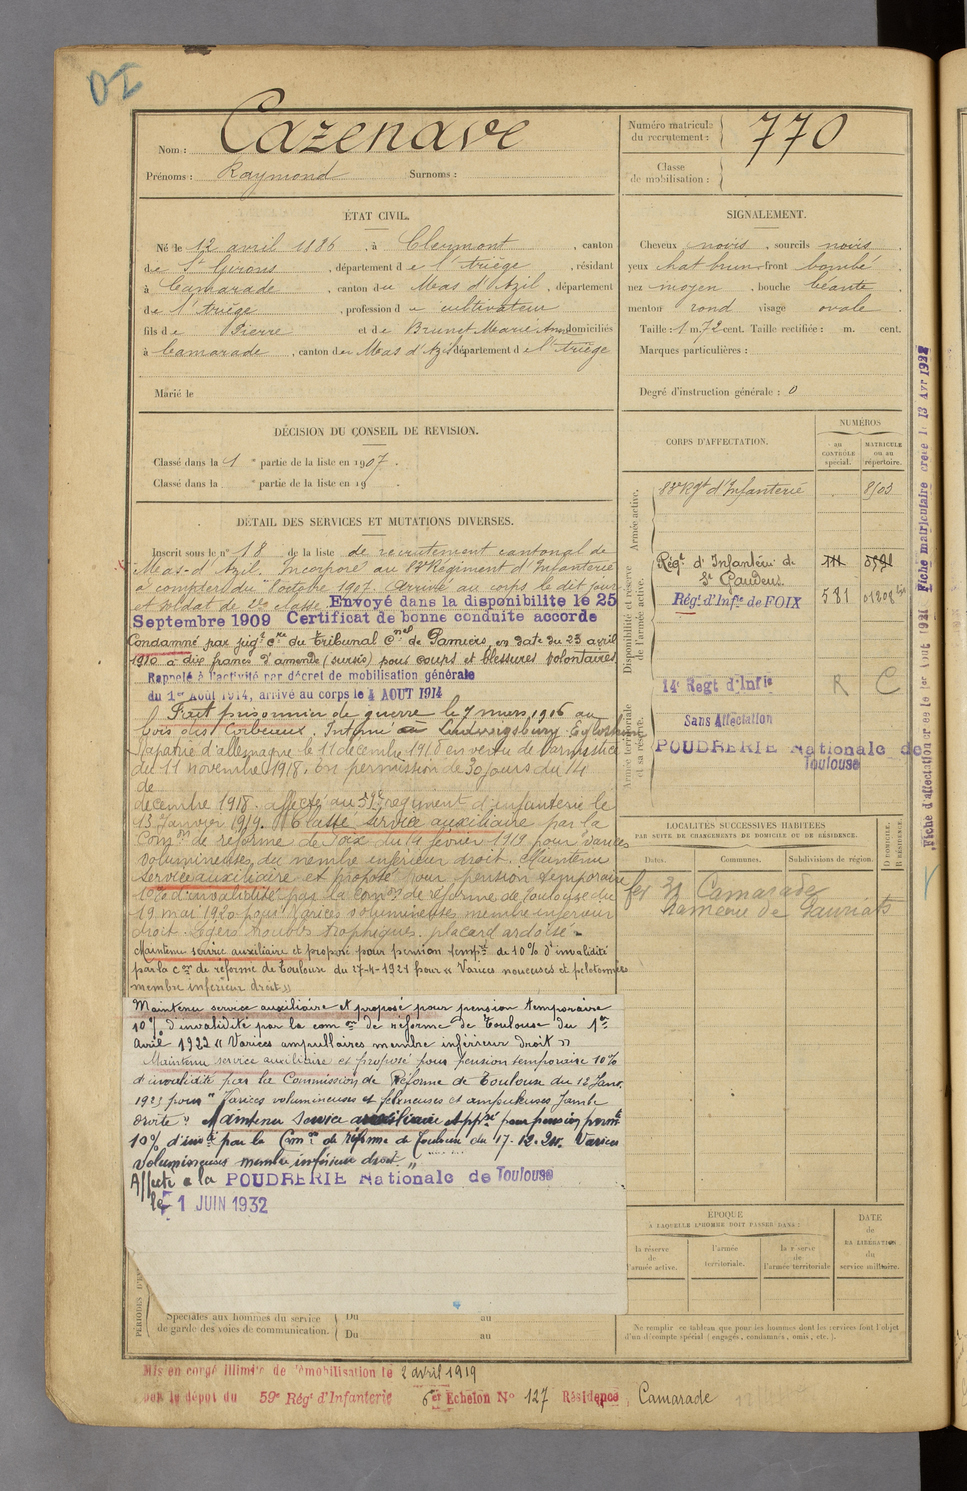 Nom : Cazenave
Prénoms : Raymond Surnoms :
Numéro matricule du recrutement : 770
Classe de mobilisation :
ÉTAT CIVIL.
Né le 12 avril 1886, à Clermont, canton
de St Girons, département de l'Ariège, résidant
à Camarade, canton du Mas d'Azil, département
de l'Ariège, profession de cultivateur
fils de Pierre et de Brunet Marie Anne domiciliés
à Camarade, canton du Mas d'Azil département de l'Ariège
Marié le
SIGNALEMENT.
Cheveux noirs, sourcils noirs
yeux chat brun front bombé
nez moyen, bouche béante
menton rond visage ovale
Taille : 1 m. 72 cent. Taille rectifiée : m. cent.
Marques particulières :
Degré d'instruction générale : 0
DÉCISION DU CONSEIL DE REVISION.
Classé dans la 1e partie de la liste en 1907.
Classé dans la e partie de la liste en 19
DÉTAIL DES SERVICES ET MUTATIONS DIVERSES.
Inscrit sous le n° 18 de la liste de recrutement cantonal de
Mas-d'Azil. Incorporé au Régiment d'Infanterie
à compter du octobre 1907. Arrivé au corps le dit jour
et soldat de 2e classe. Envoyé dans la disponibilite le 25
Septembre 1909 Certificat de bonne conduite accorde
Condamné par jugt cre du tribunal cnel de Pamiers, en date du 23 avril
1910 à dix francs d'amende (sursis) pour coups et blessures volontaires
Rappelé à l'activité par décret de mobilisation générale
du 1er Août 1914, arrivé au corps le 4 AOUT 1914
Fait prisonnier de guerre le 7 mars 1916 au
bois des Corbeaux. Interné Ludwigsburg
Rapatrié d'allemagne le 11 decembre 1918 en vertu de l'armistice
du 11 novembre 1918. En permission de 30 jours du 14
de
decembre 1918. affecté au 59e regiment d'infanterie le
13 Janvier 1919. Classé service auxiliaire par la
Comon de réforme de Foix du 14 février 1919 pour varices
volumineuses du membre inférieur droit. Maintenu
service auxiliaire et proposé pour pension temporaire
10% d'invalidité par la Comon de réforme de Toulouse du
19 mai 1920 pour varices volumineuses membre inférieur
droit. Légers troubles trophiques. placard ardoisé.
Maintenu service auxiliaire et proposé pour pension tempre de 10% d'invalidité
par la con de réforme de Toulouse du 27-4-1921 pour « Varices noueuses et pelotonnées
membre inférieur droit »
Maintenu service auxiliaire et proposé pour pension temporaire
10% d'invalidité par la comon de réforme de Toulouse du 1er
Avril 1922 « Varices ampullaires membre inférieur droit »
Maintenu service auxiliaire et proposé pour pension temporaire 10%
d'invalidité par la Commission de Réforme de Toulouse du 12 Janv.
1923 pour " Varices volumineuses et ampuleuses Jambe
droite " Maintenu service auxiliaire et ppsé pour pension permte
10% d'invté par la Comon de réforme de Toulouse du 17-12-24. Varices
volumineuses membre inférieur droit. "
Affecté a la POUDRERIE Nationale de Toulouse
le 1 JUIN 1932
CORPS D'AFFECTATION.
NUMÉROS
au CONTRÔLE spécial.
MATRICULE ou au répertoire.
Armée active.
Regt d'Infanterie 8503
Disponibilité et réserve de l'armée active.
Régt d'Infanterie de
St Gaudens.
Régt d'Infie de FOIX 581
14e Regt d'Infie R C
Armée territoriale et sa réserve.
Sans Affectation
POUDRERIE Nationale de
Toulouse
LOCALITÉS SUCCESSIVES HABITÉES
PAR SUITE DE CHANGEMENTS DE DOMICILE OU DE RÉSIDENCE.
Dates. Communes. Subdivisions de région.
D DOMICILE. R RÉSIDENCE.
Camarade
hameau de
ÉPOQUE
À LAQUELLE L'HOMME DOIT PASSER DANS :
la réserve de l'armée active.
l'armée territoriale.
la réserve de l'armée territoriale
DATE de LA LIBÉRATION du service militaire.
Ne remplir ce tableau que pour les hommes dont les services font l'objet
d'un décompte spécial (engagés, condamnés, omis, etc.).
Spéciales aux hommes du service
de garde des voies de communication.
Du au
Du au
Mis en congé illimité de démobilisation le 2 avril 1919
le dépôt du 59e Régt d'Infanterie 6er Echelon No 127 Résidence, Camarade
Fiche matriculaire créée le 13 Avr 1932
Fiche d'affectation créée le 1er Août 1921